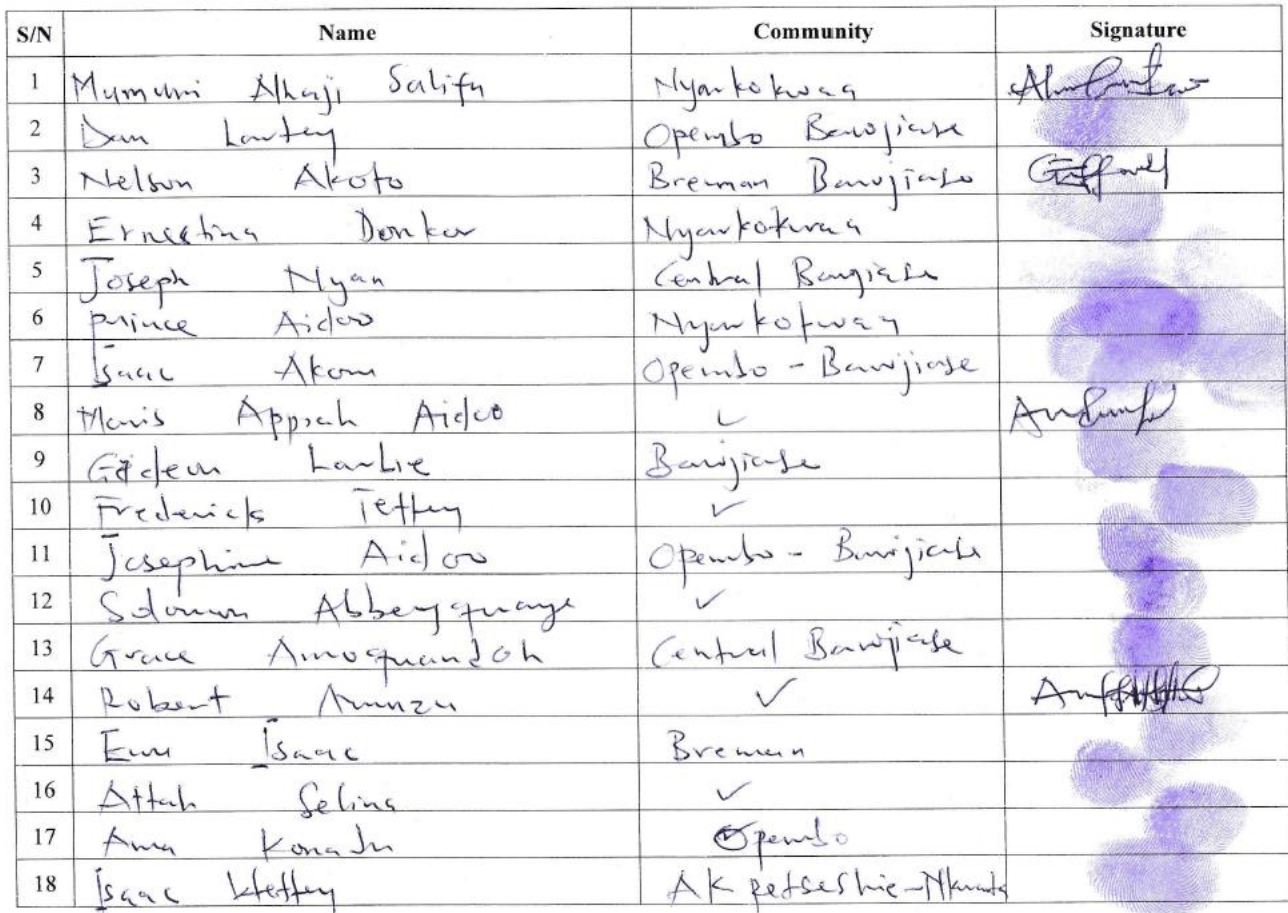 S/N Name Community Signature
1 Mumuni Alhaji Salifu Nyankokwaa
2 Dan Lartey Opembo Bawjiase
3 Nelson Akoto Breman Bawjiase
4 Ernestina Donkor Nyankokwaa
5 Joseph Nyan Central Bawjiase
6 Prince Aidoo Nyankokwaa
7 Isaac Akom Opembo - Bawjiase
8 Mavis Appiah Aidoo ✓
9 Gideon Larbie Bawjiase
10 Fredericks Tettey ✓
11 Josephine Aidoo Opembo - Bawjiase
12 Solomon Abbeyquaye ✓
13 Grace Amoquandoh Central Bawjiase
14 Robert ✓
15 Isaac Breman
16 Attah Selina ✓
17 Ama Konadu Opembo
18 Isaac